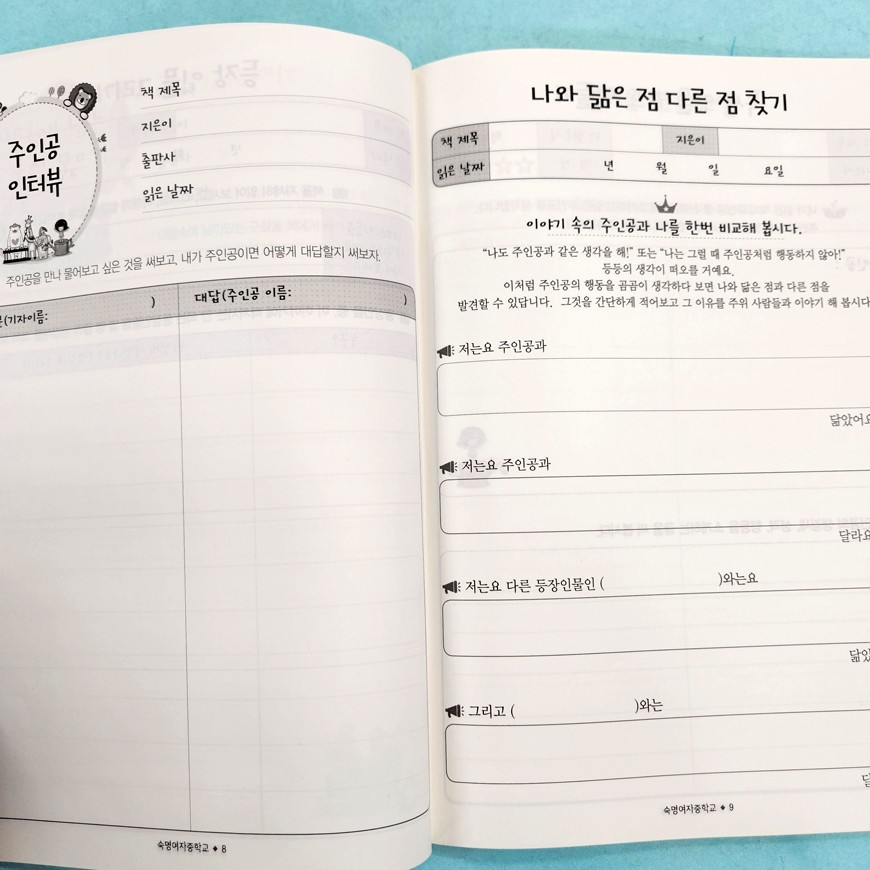 주인공
인터뷰
책 제목
지은이
출판사
읽은 날짜
주인공을 만나 물어보고 싶은 것을 써보고, 내가 주인공이면 어떻게 대답할지 써보자.
(기자이름: )
대답(주인공 이름: )
숙명여자중학교 ◆ 8
나와 닮은 점 다른 점 찾기
책 제목 지은이
읽은 날짜 년 월 일 요일
이야기 속의 주인공과 나를 한번 비교해 봅시다.
“나도 주인공과 같은 생각을 해!” 또는 “나는 그럴 때 주인공처럼 행동하지 않아!”
등등의 생각이 떠오를 거예요.
이처럼 주인공의 행동을 곰곰이 생각하다 보면 나와 닮은 점과 다른 점을
발견할 수 있답니다. 그것을 간단하게 적어보고 그 이유를 주위 사람들과 이야기 해 봅시다
저는요 주인공과
닮았어요
저는요 주인공과
달라요
저는요 다른 등장인물인 ( )와는요
닮았
그리고 ( )와는
달
숙명여자중학교 ◆ 9